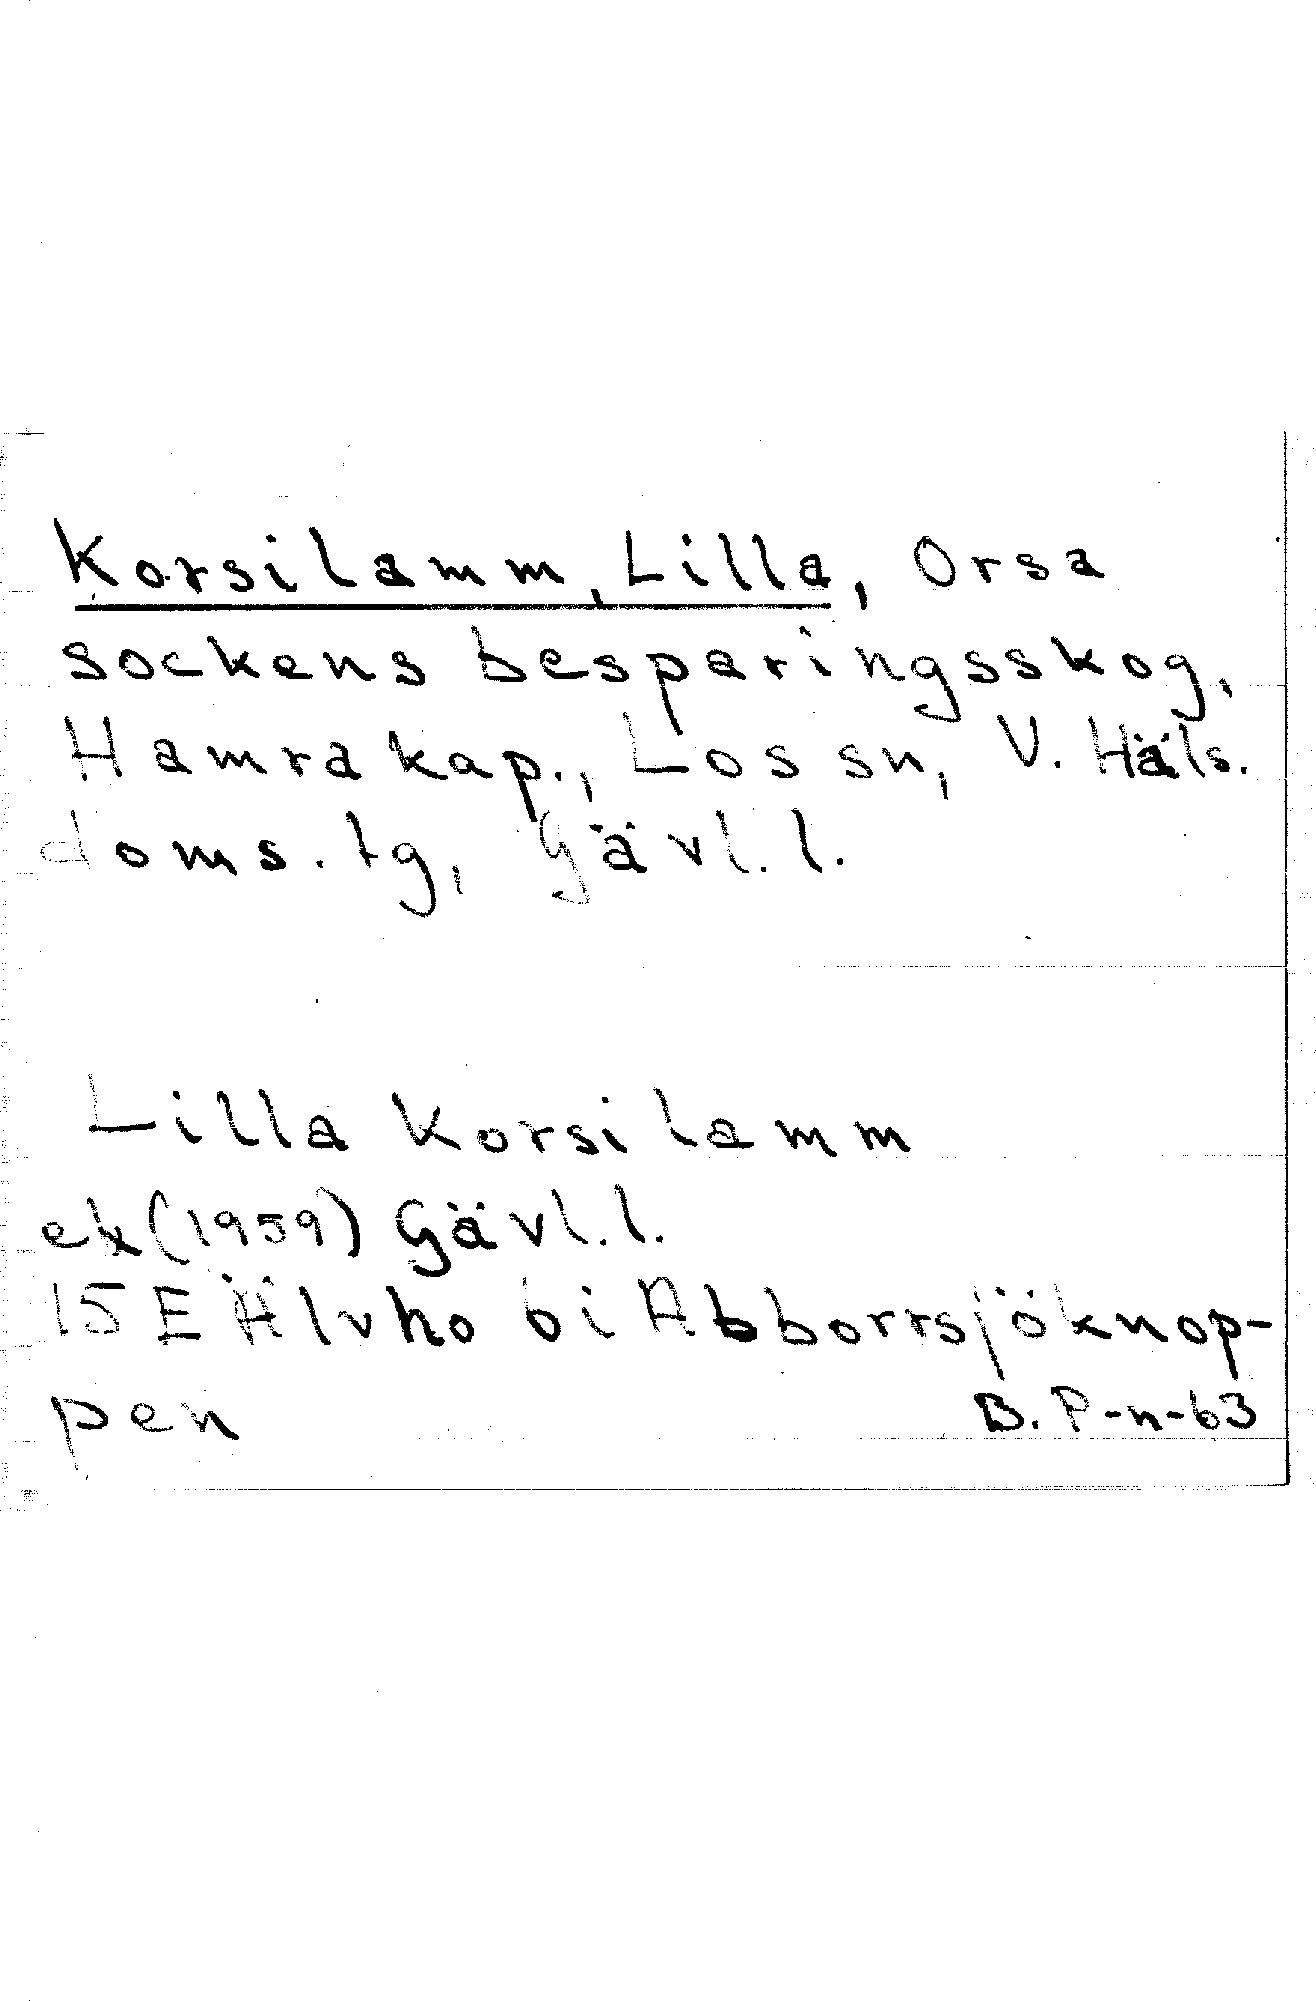 Korsilamm, Lilla, Orsa
sockens besparingsskog,
Hamra kap., Los sn, V. Häls.
doms. tg, Gävl. l.
Lilla Korsilamm
ek (1959) Gävl. l.
15 E Älvho bi Abborrsjöknop-
pen
B. P-n-63